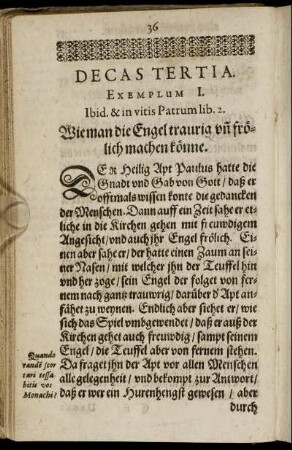 36
DECAS TERTIA.
EXEMPLUM I.
Ibid. & in vitis Patrum lib. 2.
Wie man die Engel traurig vñ frö-
lich machen könne.
DER Heilig Apt Paulus hatte die
Gnadt vnd Gab von Gott / daß er
offtmals wissen konte die gedancken
der Menschen. Dann auff ein Zeit sahe er et-
liche in die Kirchen gehen mit frewdigem
Angesicht / vnd auch jhr Engel frölich. Ei-
nen aber sahe er / der hatte einen Zaum an sei-
ner Nasen / mit welcher jhn der Teuffel hin
vnd her zoge / sein Engel der folget von fer-
nem nach gantz trawrig / darüber d' Apt an-
fähet zu weynen. Endlich aber sichet er / wie
sich das Spiel vmbgewendet / daß er auß der
Kirchen gehet auch frewdig / sampt seinem
Engel / die Teuffel aber von fernem stehen.
Da fraget jhn der Apt vor allen Menschen
alle gelegenheit / vnd bekompt zur Antwort /
daß er wer ein Hurenhengst gewesen / aber
durch
Quando
bitis vos
Monachi?